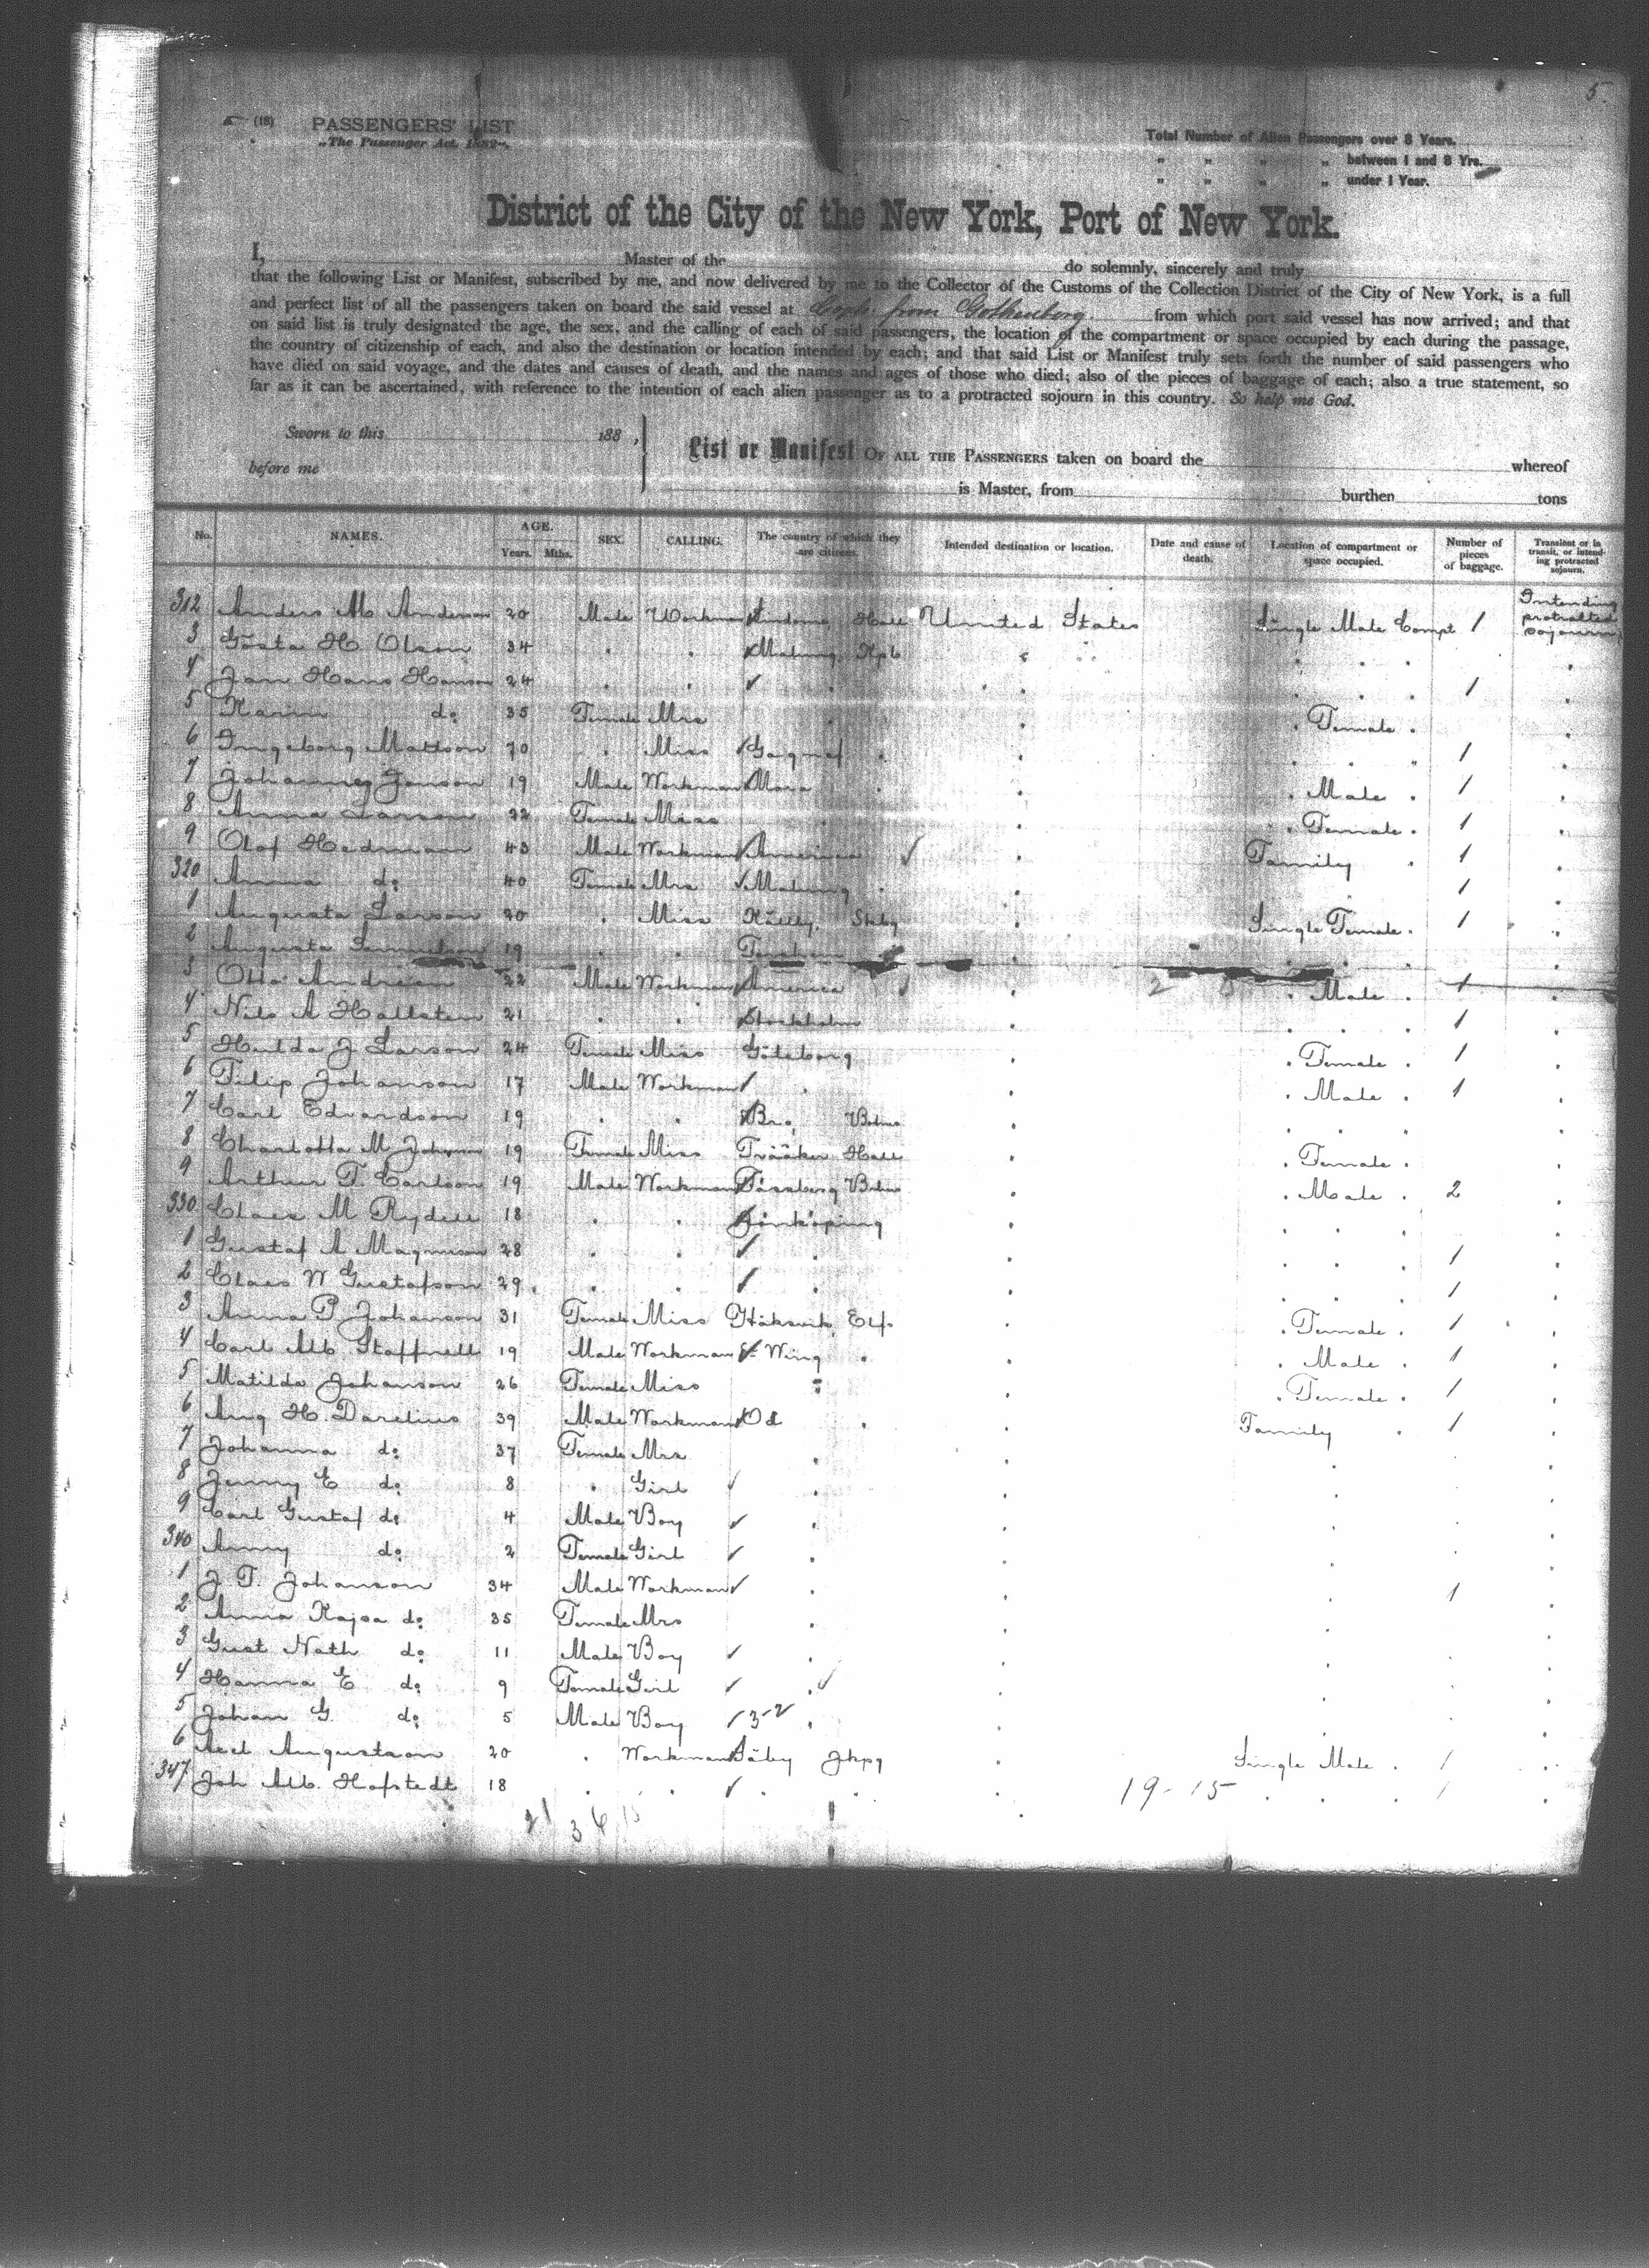 5.
(18) PASSENGERS' LIST
„The Passenger Act, 1882".
Total Number of Alien Passengers over 8 Years.
„ „ „ „ between 1 and 8 Yrs.
„ „ „ „ under 1 Year.
District of the City of the New York, Port of New York.
I, Master of the do solemnly, sincerely and truly
that the following List or Manifest, subscribed by me, and now delivered by me to the Collector of the Customs of the Collection District of the City of New York, is a full
and perfect list of all the passengers taken on board the said vessel at from Gothenborg. from which port said vessel has now arrived; and that
on said list is truly designated the age, the sex, and the calling of each of said passengers, the location of the compartment or space occupied by each during the passage,
the country of citizenship of each, and also the destination or location intended by each; and that said List or Manifest truly sets forth the number of said passengers who
have died on said voyage, and the dates and causes of death, and the names and ages of those who died; also of the pieces of baggage of each; also a true statement, so
far as it can be ascertained, with reference to the intention of each alien passenger as to a protracted sojourn in this country. So help me God.
Sworn to this 188 ,
before me
List or Manifest OF ALL THE PASSENGERS taken on board the whereof
is Master, from burthen tons
No. NAMES. AGE. Years. Mths. SEX. CALLING. The country of which they are citizens. Intended destination or location. Date and cause of death. Location of compartment or space occupied. Number of pieces of baggage. Transient or in transit, or intending protracted sojourn.
312 Anders M Anderson 20 Male Workman Hall United States Single Male Compt 1 Intending protracted sojourn
3 Gösta H Olson 34 " " Malung Kpb " " "
4 Jan Hans Hanson 24 " " " " " 1 "
5 Karin do 35 Female Mrs " " " Female " "
6 Ingeborg Mattson 70 " Miss Gagnef " " " " 1 "
7 Johannes Janson 19 Male Workman Mora " " " Male " 1 "
8 Anna Larson 22 Female Miss " " " Female " 1 "
9 Olof Hedman 43 Male Workman America " Family " 1 "
320 Anna do 40 Female Mrs Malung " 1 "
1 Augusta Larson 20 " Miss Skbg Single Female " 1 "
2 Augusta Samuelson 19 " " " " " "
3 Otto 22 Male Workman America " " Male " 1 "
4 Nils A Hallsten 21 " " Stockholm " " " " 1 "
5 Hulda J Larson 24 Female Miss Göteborg " " Female " 1 "
6 Filip Johanson 17 Male Workman " " " Male " 1 "
7 Carl Edvardson 19 " " Bro " " " " "
8 Charlotta M Johnson 19 Female Miss Hall " " Female " "
9 Arthur F. Carlson 19 Male Workman " " Male " 2 "
330 Claes M Rydell 18 " " Jönköping " " " " "
1 Gustaf A Magnuson 28 " " " " " " 1 "
2 Claes W Gustafson 29 " " " " " " 1 "
3 Anna P Johanson 31 Female Miss Elf. " " Female " 1 "
4 Carl Alb Staffnell 19 Male Workman Wing " " " Male " 1 "
5 Matilda Johanson 26 Female Miss " " " Female " 1 "
6 Aug H Darelius 39 Male Workman Od " " Family " 1 "
7 Johanna do 37 Female Mrs " " " "
8 Jenny E do 8 " Girl " " " "
9 Carl Gustaf do 4 Male Boy " " " "
340 Anny do 2 Female Girl " " " "
1 J. F. Johanson 34 Male Workman " " 1 "
2 Anna Kajsa do 35 Female Mrs " " " "
3 Gust Nath do 11 Male Boy " " " "
4 Hanna E do 9 Female Girl " " " "
5 Johan G. do 5 Male Boy 3-2 " " " "
6 Axel Augustson 20 " Workman Säby Jkpg " Single Male " 1 "
347 Joh Alb. Hofstedt 18 " " " " " 19-15 " " " 1 "
21 36 15